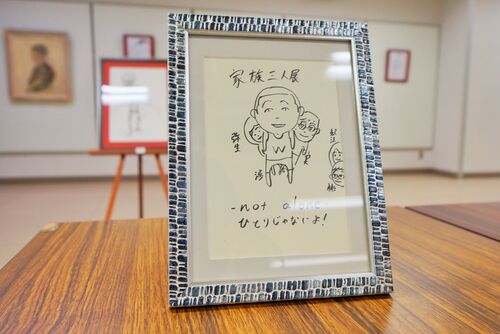 家族三人展
弥生
渉
W
-not alone-
ひとりじゃないよ!